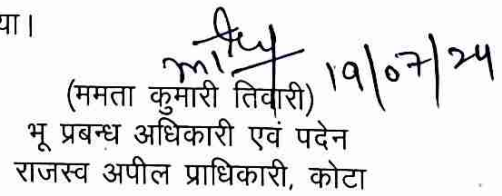 या।
19/07/24
(ममता कुमारी तिवारी)
भू प्रबन्ध अधिकारी एवं पदेन
राजस्व अपील प्राधिकारी, कोटा